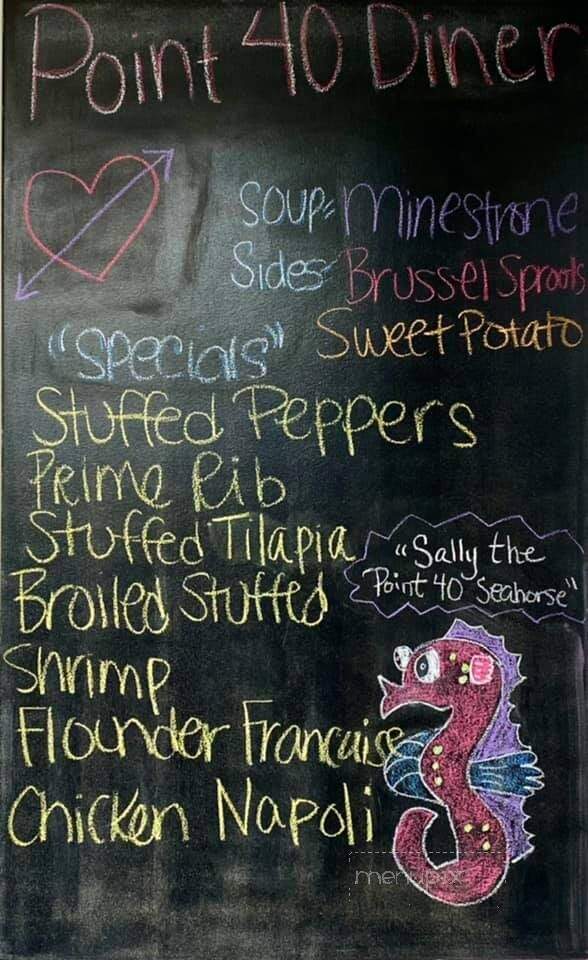 Point 40 Diner
Soup: Minestrone
Sides: Brussel Sprouts
Sweet Potato
"Specials"
Stuffed Peppers
Prime Rib
Stuffed Tilapia
Broiled Stuffed
Shrimp
Flounder Francaise
Chicken Napoli
"Sally the
Point 40 Seahorse"
menupix